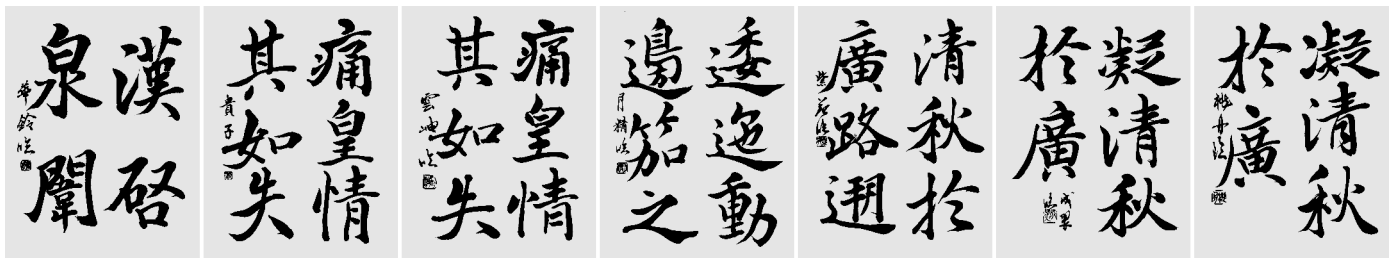 漢啓
泉闈
華鈴臨
痛皇情
其如失
貴子
痛皇情
其如失
雲岫臨
逶迤動
邊笳之
月精臨
清秋於
廣路遡
凝清秋
於廣
凝清秋
於廣